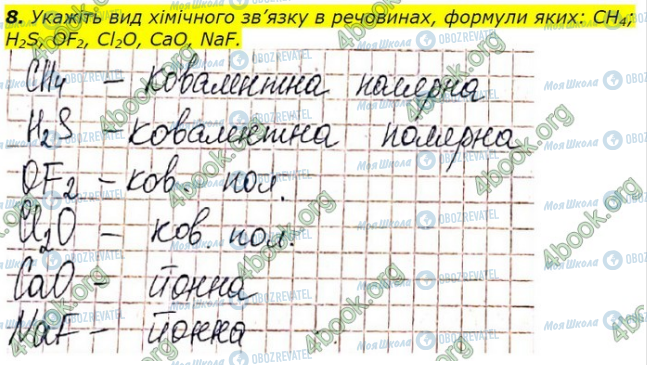 8. Укажіть вид хімічного зв’язку в речовинах, формули яких: CH₄,
H₂S, OF₂, Cl₂O, CaO, NaF.
CH₄ – ковалентна полярна
H₂S – ковалентна полярна
OF₂ – ков. пол.
Cl₂O – ков. пол.
CaO – йонна
NaF – йонна